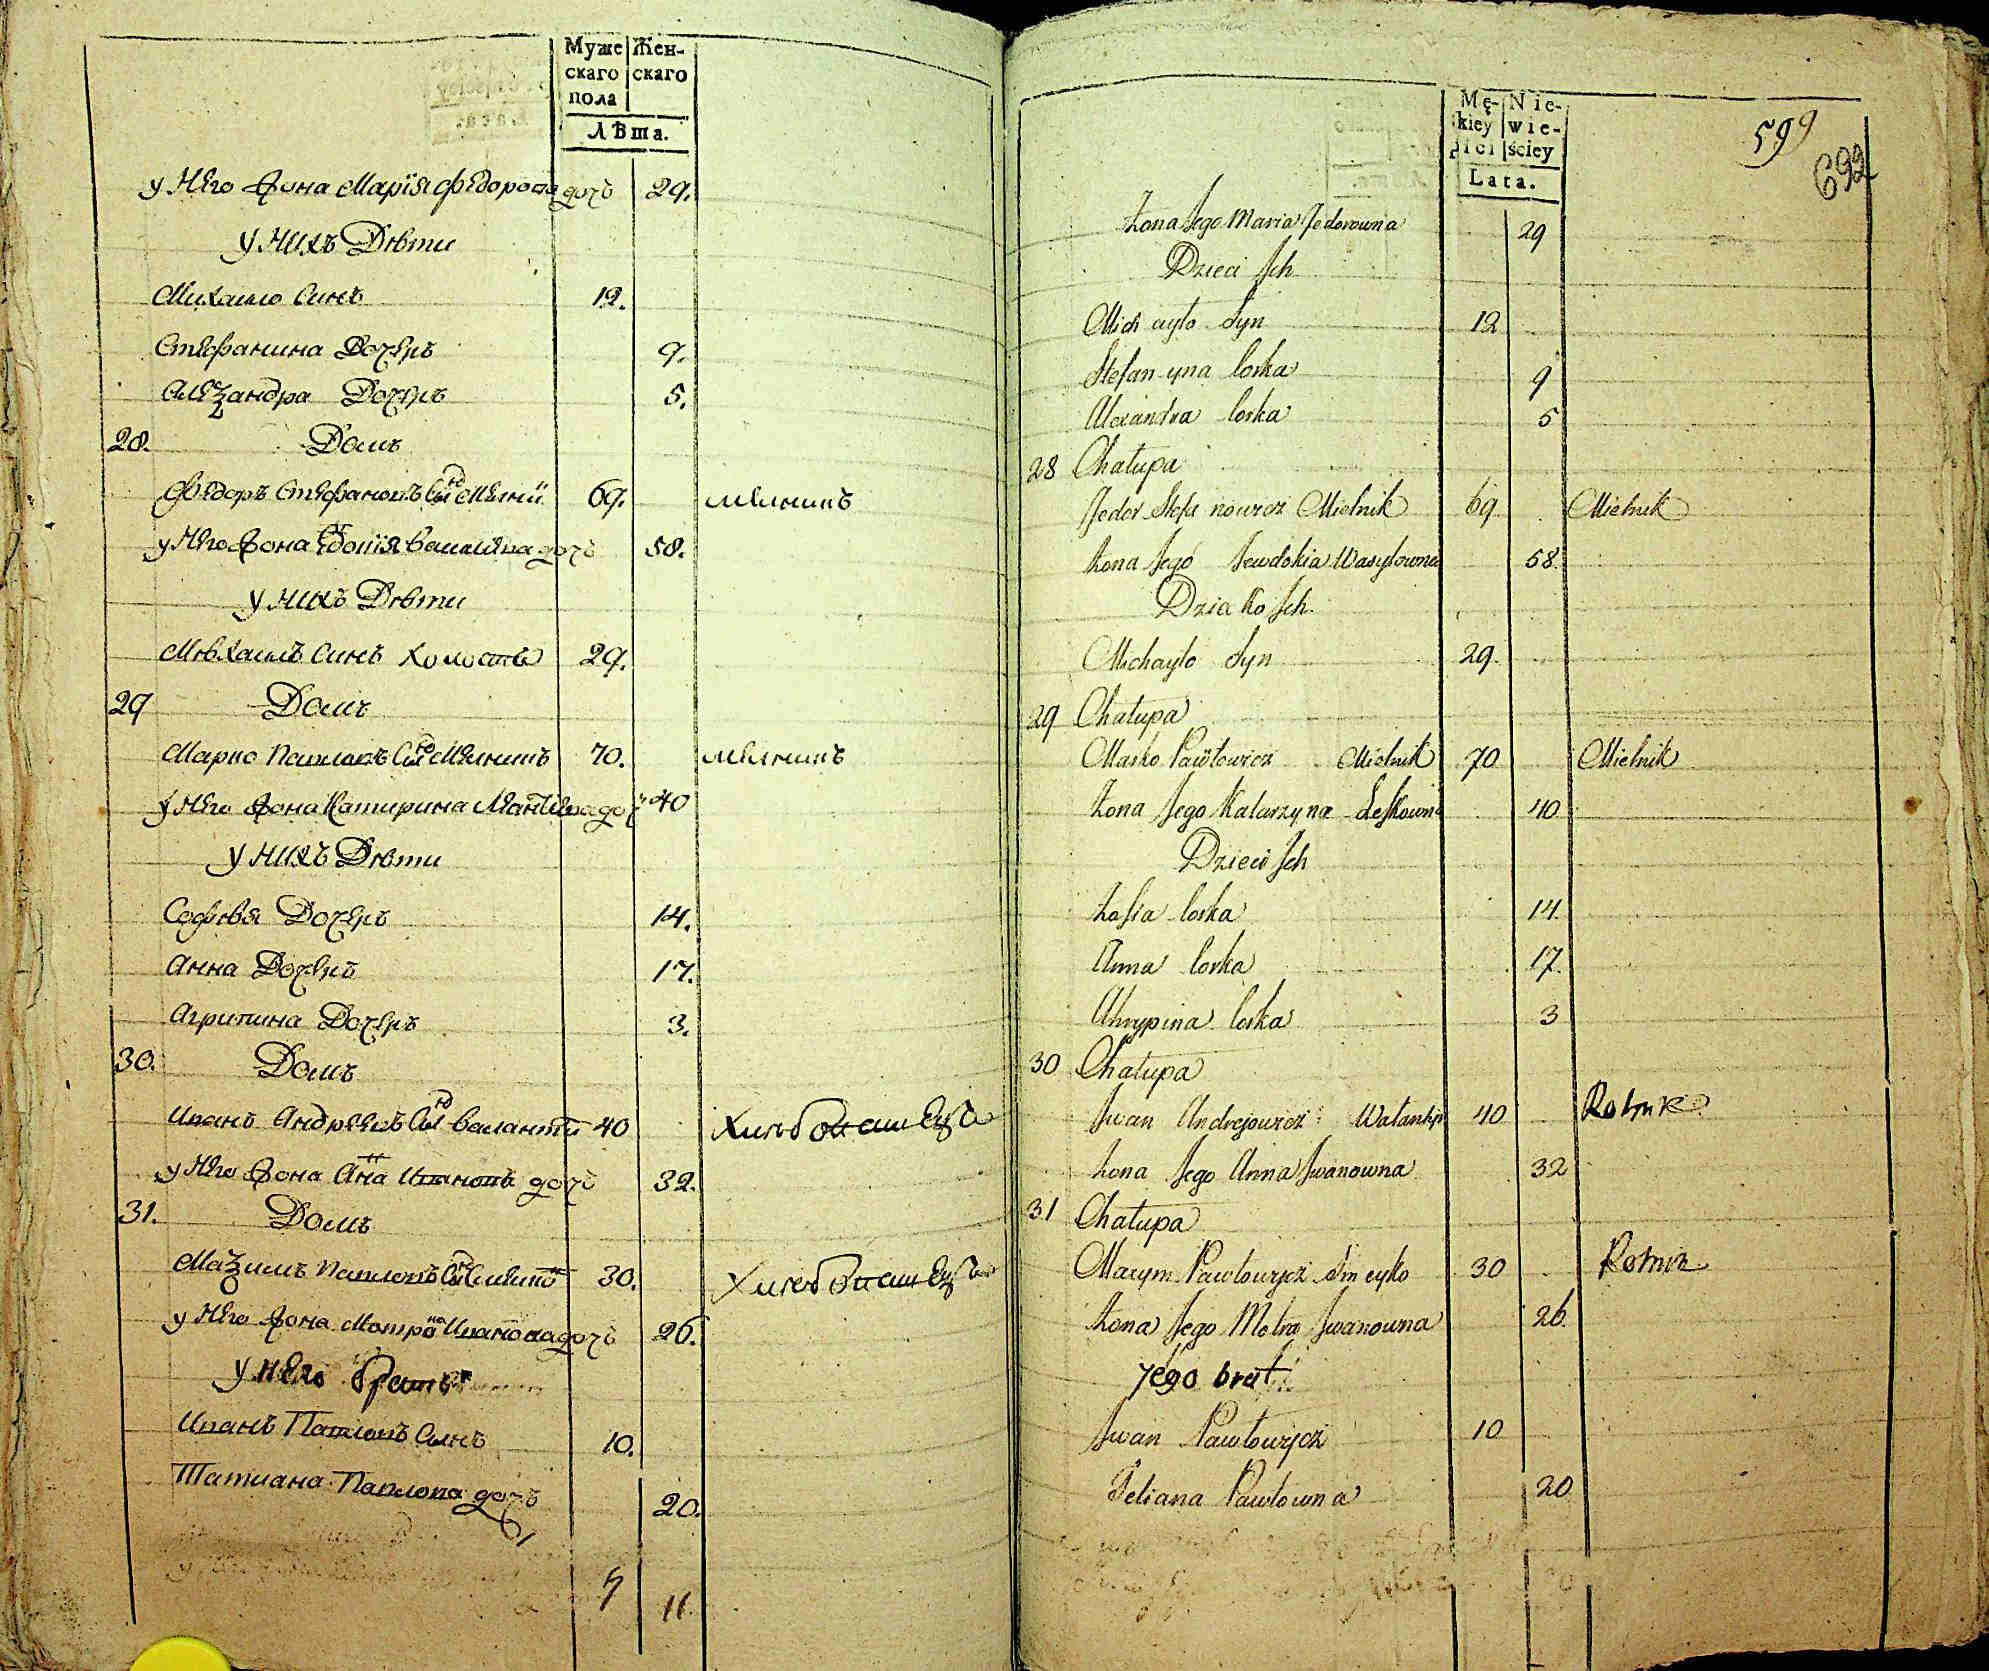 Муже Жен-
скаго скаго
пола
Лѣта.
у Него Жона Марїя Федорова дочъ 29.
у Нихъ Дѣти
Михаило Синъ 12.
Стефанина Дочеръ 9.
Алеѯандра Дочеръ 5.
28. Домъ
Федоръ Стефановъ Сынъ 69. мелникъ
у Него Жона Евдокїя Василева дочъ 58.
у Нихъ Дѣти
Мѣхаилъ Синъ Холостъ 29.
29 Домъ
Марко Павловъ Сынъ Мелникъ 70. мелникъ
у Него Жона Катирина дочъ 40
у Нихъ Дѣти
Софѣя Дочеръ 14.
Анна Дочеръ 17.
Агрипина Дочеръ 3.
30. Домъ
Иванъ Андреевъ Сынъ 40 Хлѣбопашецъ
у Него Жона Анна Иванова дочъ 32.
31. Домъ
Маѯимъ Павловъ Сынъ 30. Хлѣбопашецъ
у Него Жона Мотрона Иванова дочъ 26.
у него братъ
Иванъ Павловъ Сынъ 10.
Татиана Павлова дочъ 20.
7 11
Mę- Nie-
kiey wie-
płci ściey
Lata.
599
692
Zona Jego Maria Fedorowna 29
Dzieci Jch
Michayło Syn 12
Stefanyna Corka 9
Alexandra Corka 5
28 Chałupa
Fedor Stefanowicz Mielnik 69 Mielnik
Zona Jego Jewdokia Wasylowna 58.
Dziecko Jch
Michayło Syn 29.
29 Chałupa
Marko Pawłowicz Mielnik 70 Mielnik
Zona Jego Katarzyna 40
Dzieci Jch
Zofia Corka 14.
Anna Corka 17.
Ahrypina Corka 3
30 Chałupa
Jwan Andrejowicz 40 Rolnik
Zona Jego Anna Jwanowna 32
31 Chałupa
Maxym Pawłowicz 30 Rolnik
Zona Jego Motra Jwanowna 26.
Jego brat
Jwan Pawłowicz 10
Teliana Pawłowna 20